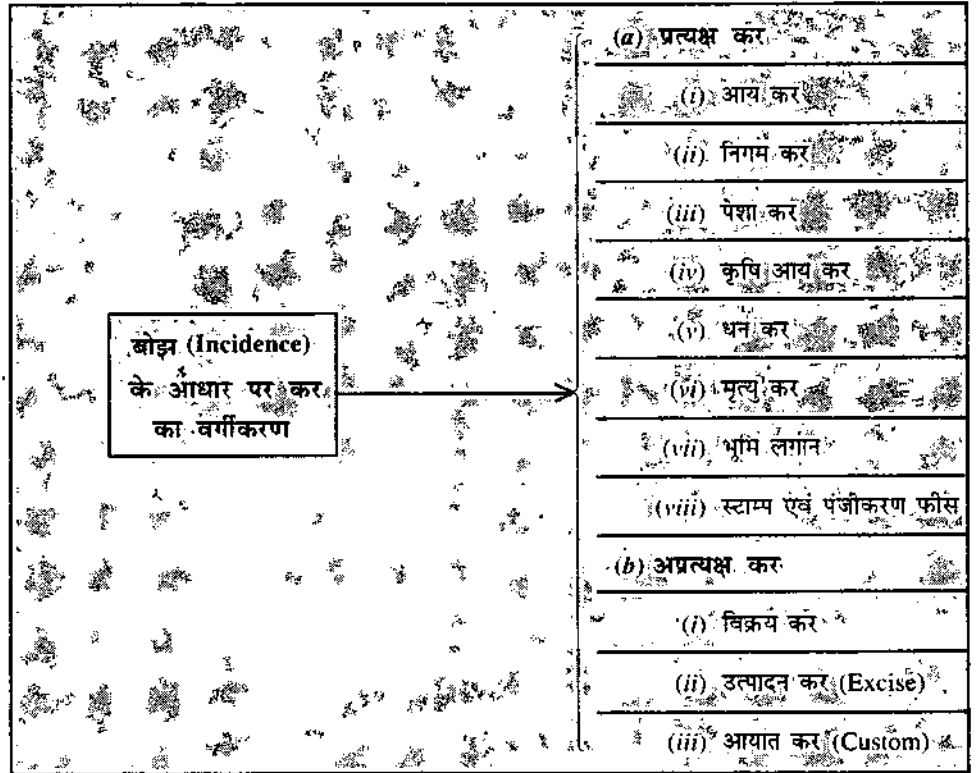 बोझ (Incidence)
के आधार पर कर
का वर्गीकरण
(a) प्रत्यक्ष कर
(i) आय कर
(ii) निगम कर
(iii) पेशा कर
(iv) कृषि आय कर
(v) धन कर
(vi) मृत्यु कर
(vii) भूमि लगान
(viii) स्टाम्प एवं पंजीकरण फीस
(b) अप्रत्यक्ष कर
(i) विक्रय कर
(ii) उत्पादन कर (Excise)
(iii) आयात कर (Custom)